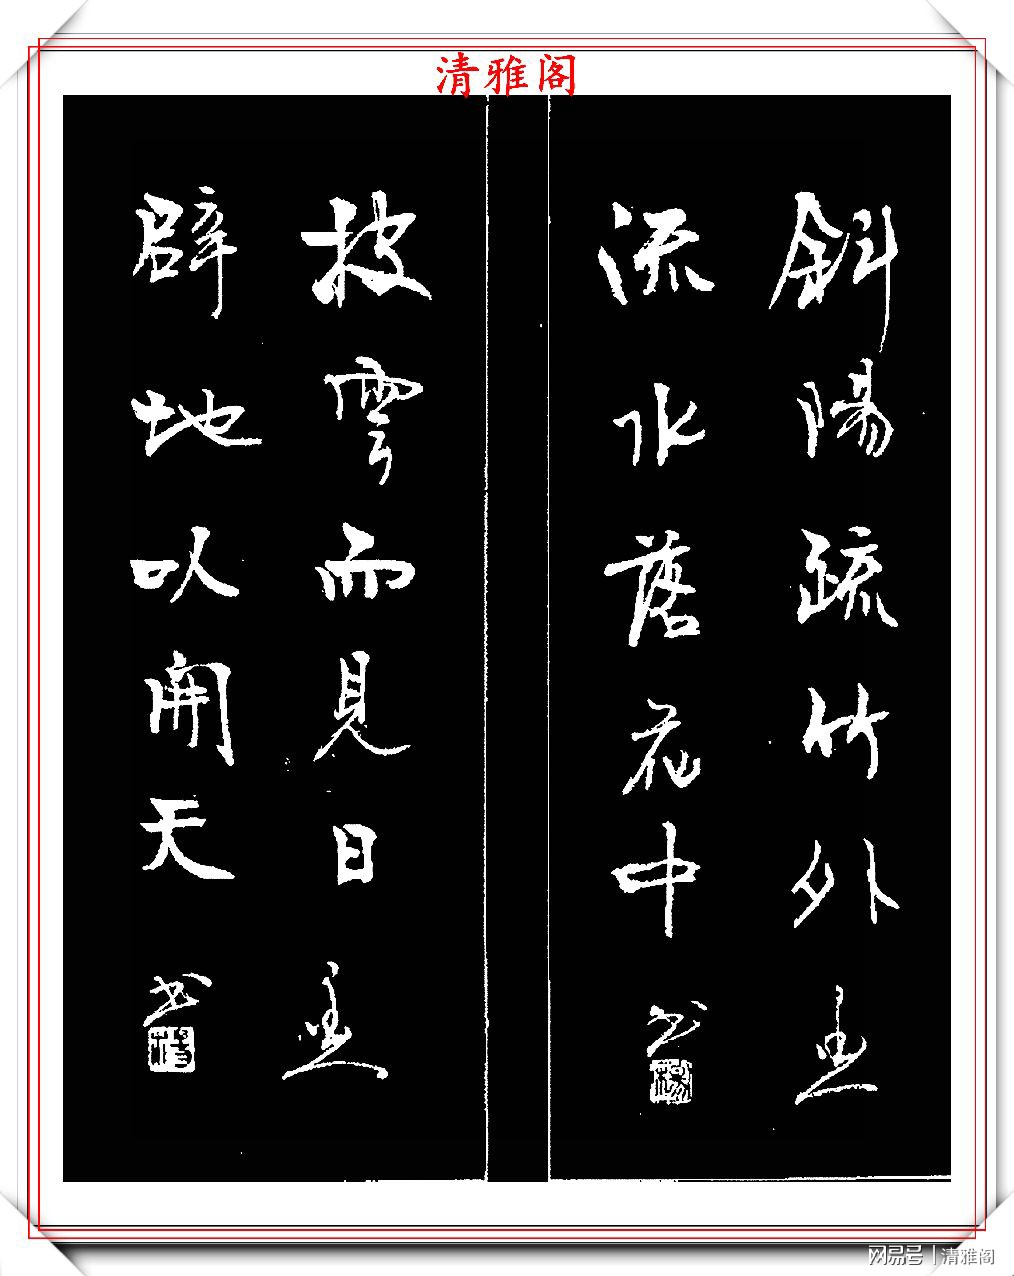 清雅阁
斜陽疏竹外
流水落花中 书
披雲而見日
辟地以開天 书
网易号 | 清雅阁